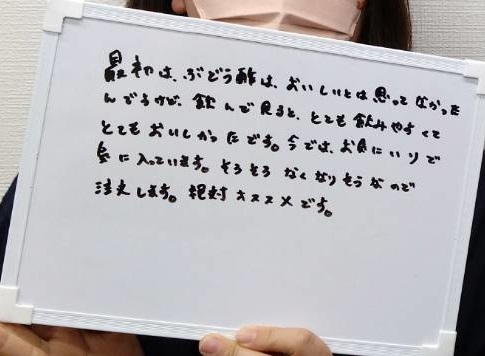 最初は、ぶどう酢は、おいしいとは思ってなかった
んですけど、飲んで見ると、とても飲みやすくて
とてもおいしかったです。今では、お気にいりで
気に入っています。そろそろなくなりそうなので
注文します。絶対オススメです。